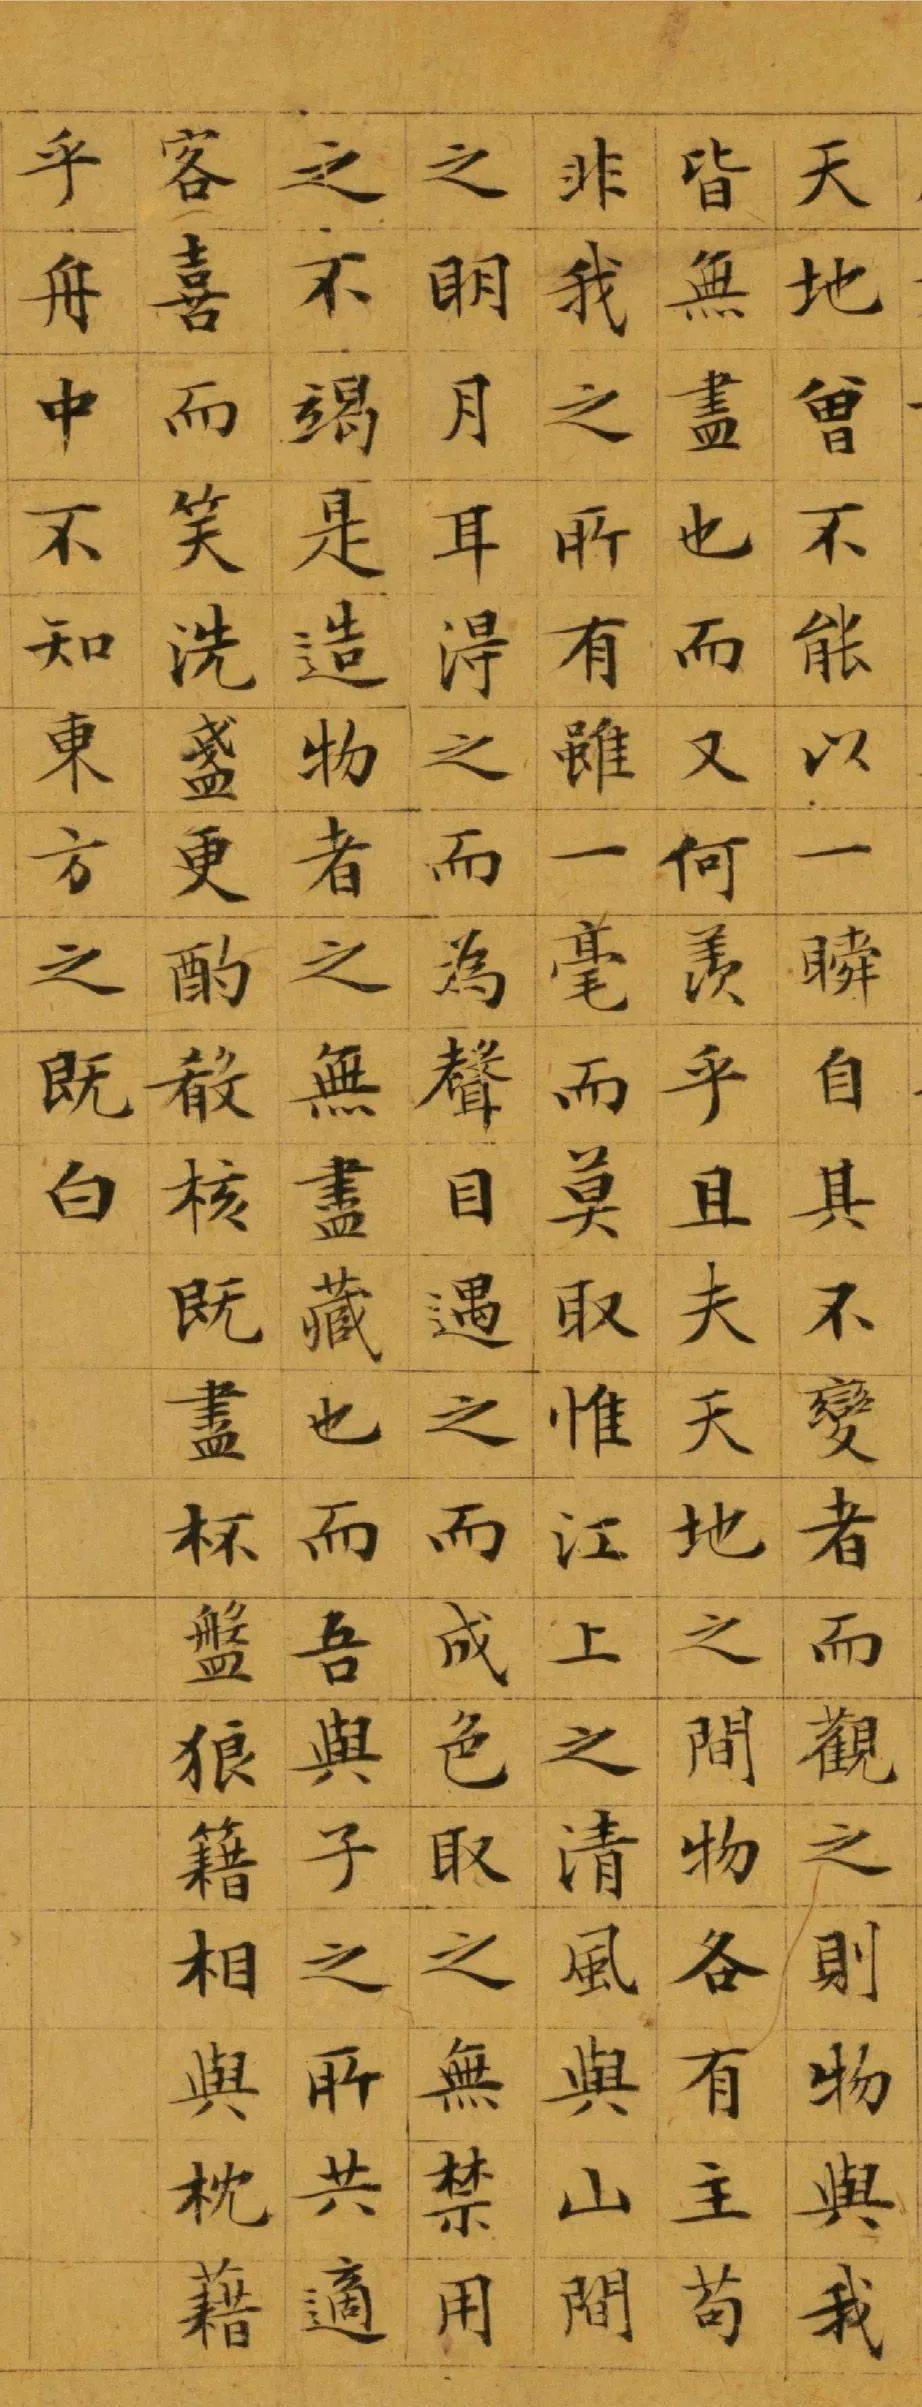 天地曾不能以一瞬自其不變者而觀之則物與我
皆無盡也而又何羨乎且夫天地之間物各有主苟
非我之所有雖一毫而莫取惟江上之清風與山間
之明月耳得之而為聲目遇之而成色取之無禁用
之不竭是造物者之無盡藏也而吾與子之所共適
客喜而笑洗盞更酌殽核既盡杯盤狼籍相與枕藉
乎舟中不知東方之既白